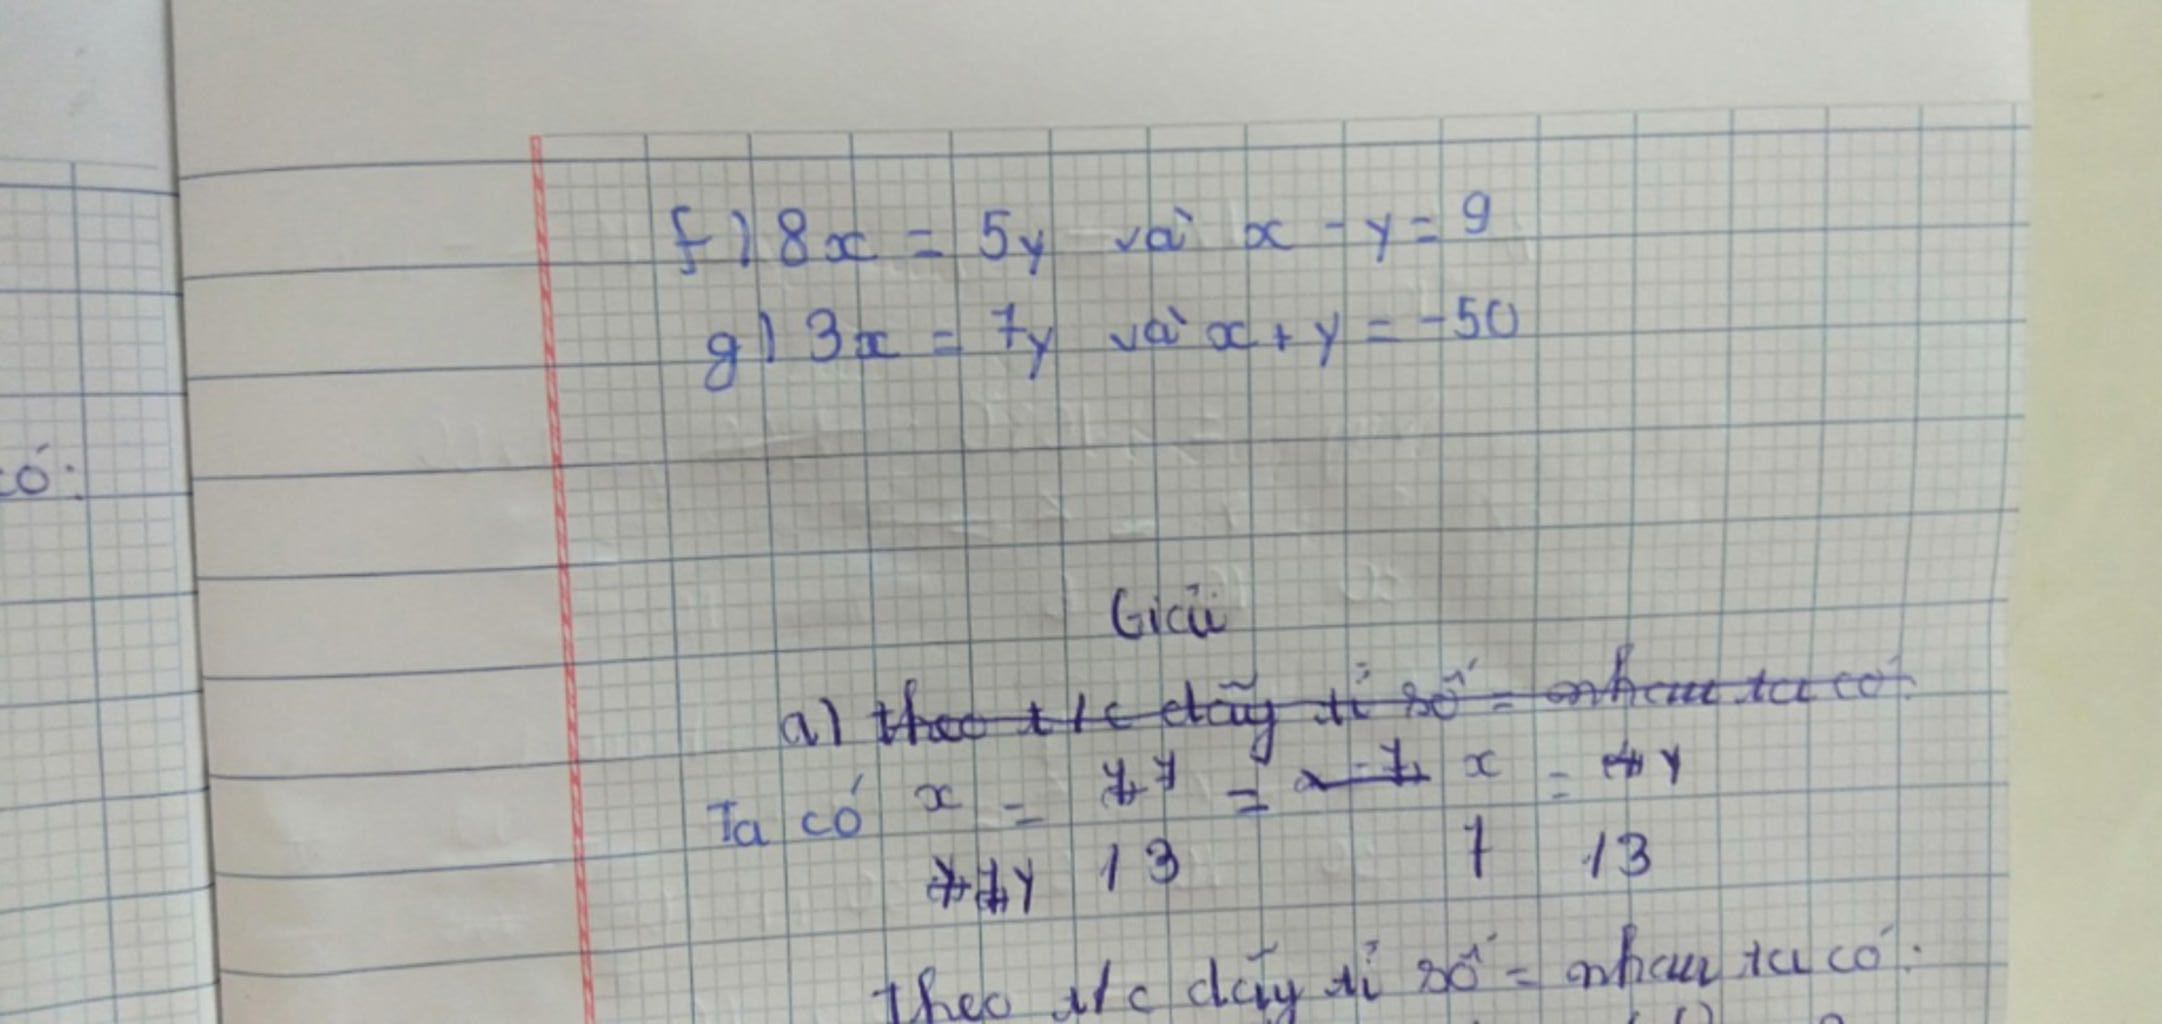 có:
f) 8x = 5y và x - y = 9
g) 3x = 7y và x + y = -50
Giải
a) theo t/c dãy tỉ số = nhau ta có:
Ta có x/y = 7/13 = x/7 = y/13
theo t/c dãy tỉ số = nhau ta có: